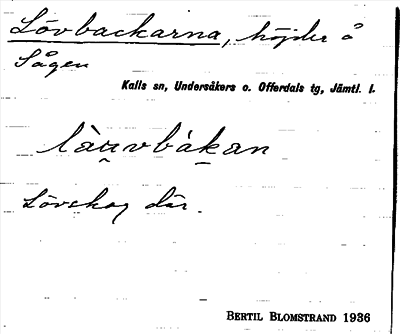 Lövbackarna, höjder å
Sågen
Kalls sn, Undersåkers o. Offerdals tg, Jämtl. l.
làu̯vbàk̠an
Lövskog där.
BERTIL BLOMSTRAND 1936